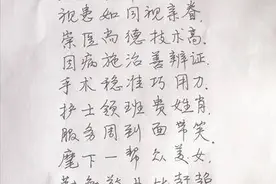 视患如同视亲眷.
崇医尚德技术高.
因病施治善辨证
手术稳准巧用力.
护士领班费姓肖
服务周到面带笑.
麾下一帮众美女.